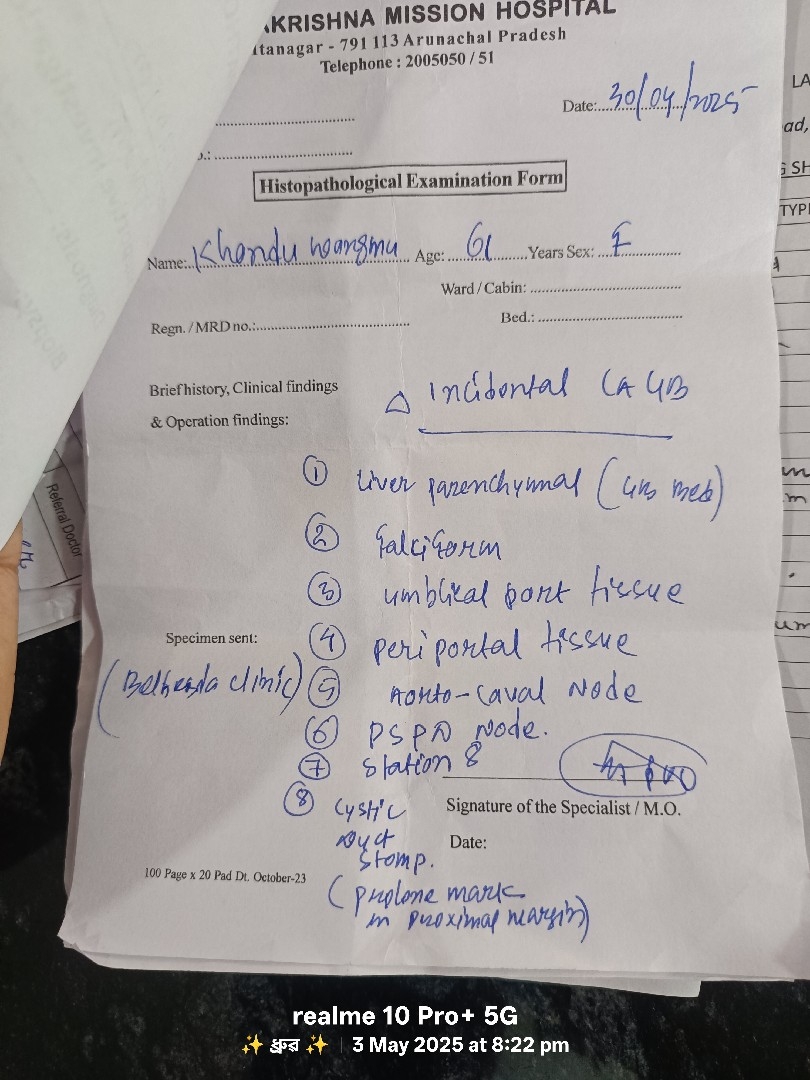 AKRISHNA MISSION HOSPITAL
itanagar - 791 113 Arunachal Pradesh
Telephone : 2005050 / 51
Date: 30/04/2025
Histopathological Examination Form
Name: Khandu Wangmu Age: 61 Years Sex: F
Ward / Cabin:
Regn. / MRD no.:
Bed.:
Brief history, Clinical findings
& Operation findings:
△ Incidental CA GB
① Liver parenchymal (GB Bed)
② falciform
③ umblical port tissue
Specimen sent:
④ periportal tissue
(Bethesda clinic) ⑤ Aorto-Caval Node
⑥ PSPD Node.
⑦ Station 8
⑧ Cystic
Duct
Stomp.
Signature of the Specialist / M.O.
Date:
100 Page x 20 Pad Dt. October-23
(prolene mark
in proximal margin)
Referral Doctor
LA
ad,
G SH
TYPE
realme 10 Pro+ 5G
✨ ধ্রুব ✨ | 3 May 2025 at 8:22 pm